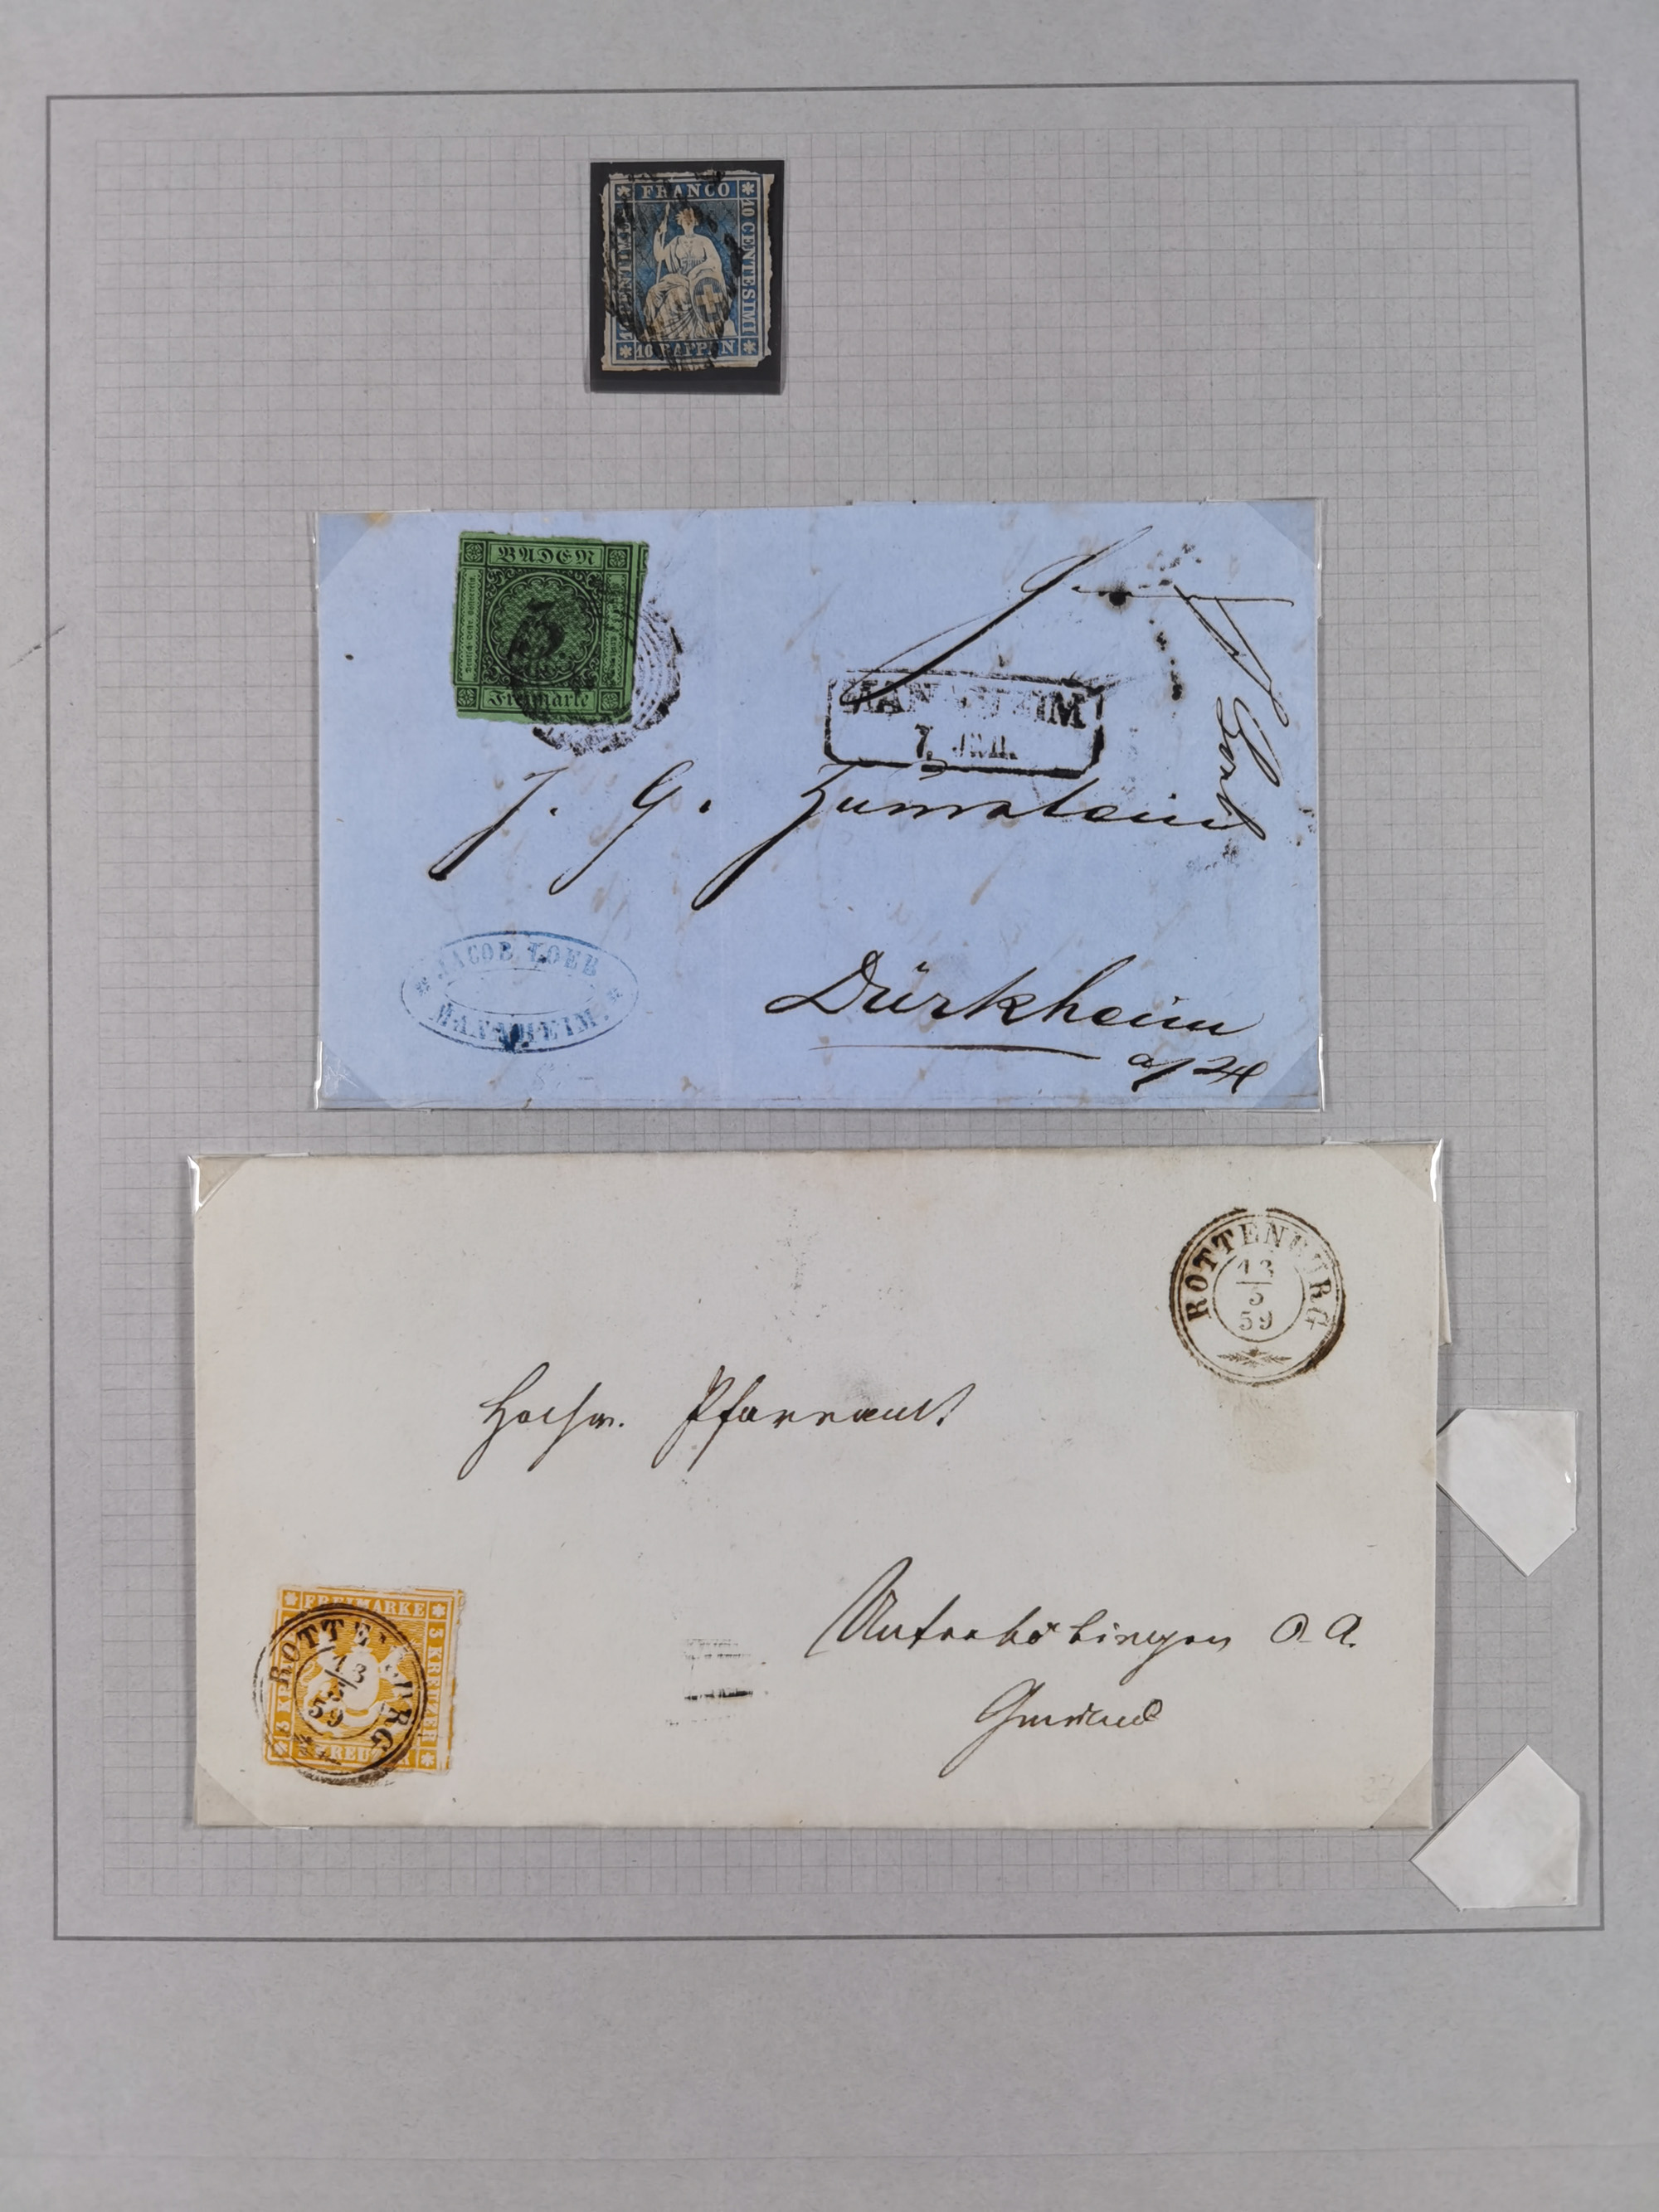 FRANCO
10 CENTESIMI
10 RAPPEN
BADEN
3
Freimarke
MANNHEIM
7. JUN.
J. G. Zumstein
JACOB LOEB
MANNHEIM.
Dürkheim
a/H
ROTTENBURG
13
5
59
Hochw. Pfarramt
FREIMARKE
3 KREUZER
3 KREUZER
ROTTENBURG
13
5
59
Unterböbingen O. A.
Gmünd